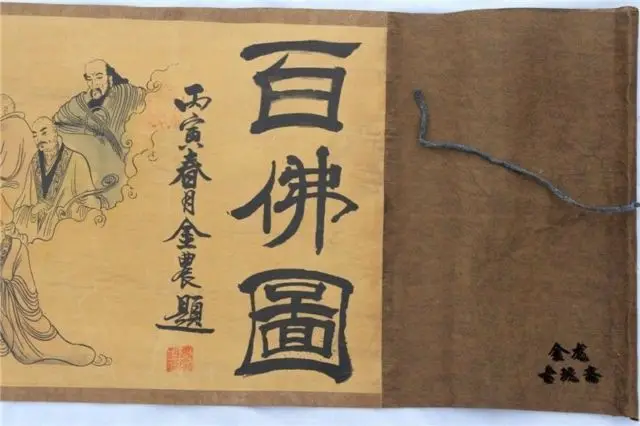 百佛圖
丙寅春月金農題
金龙
古玩斋